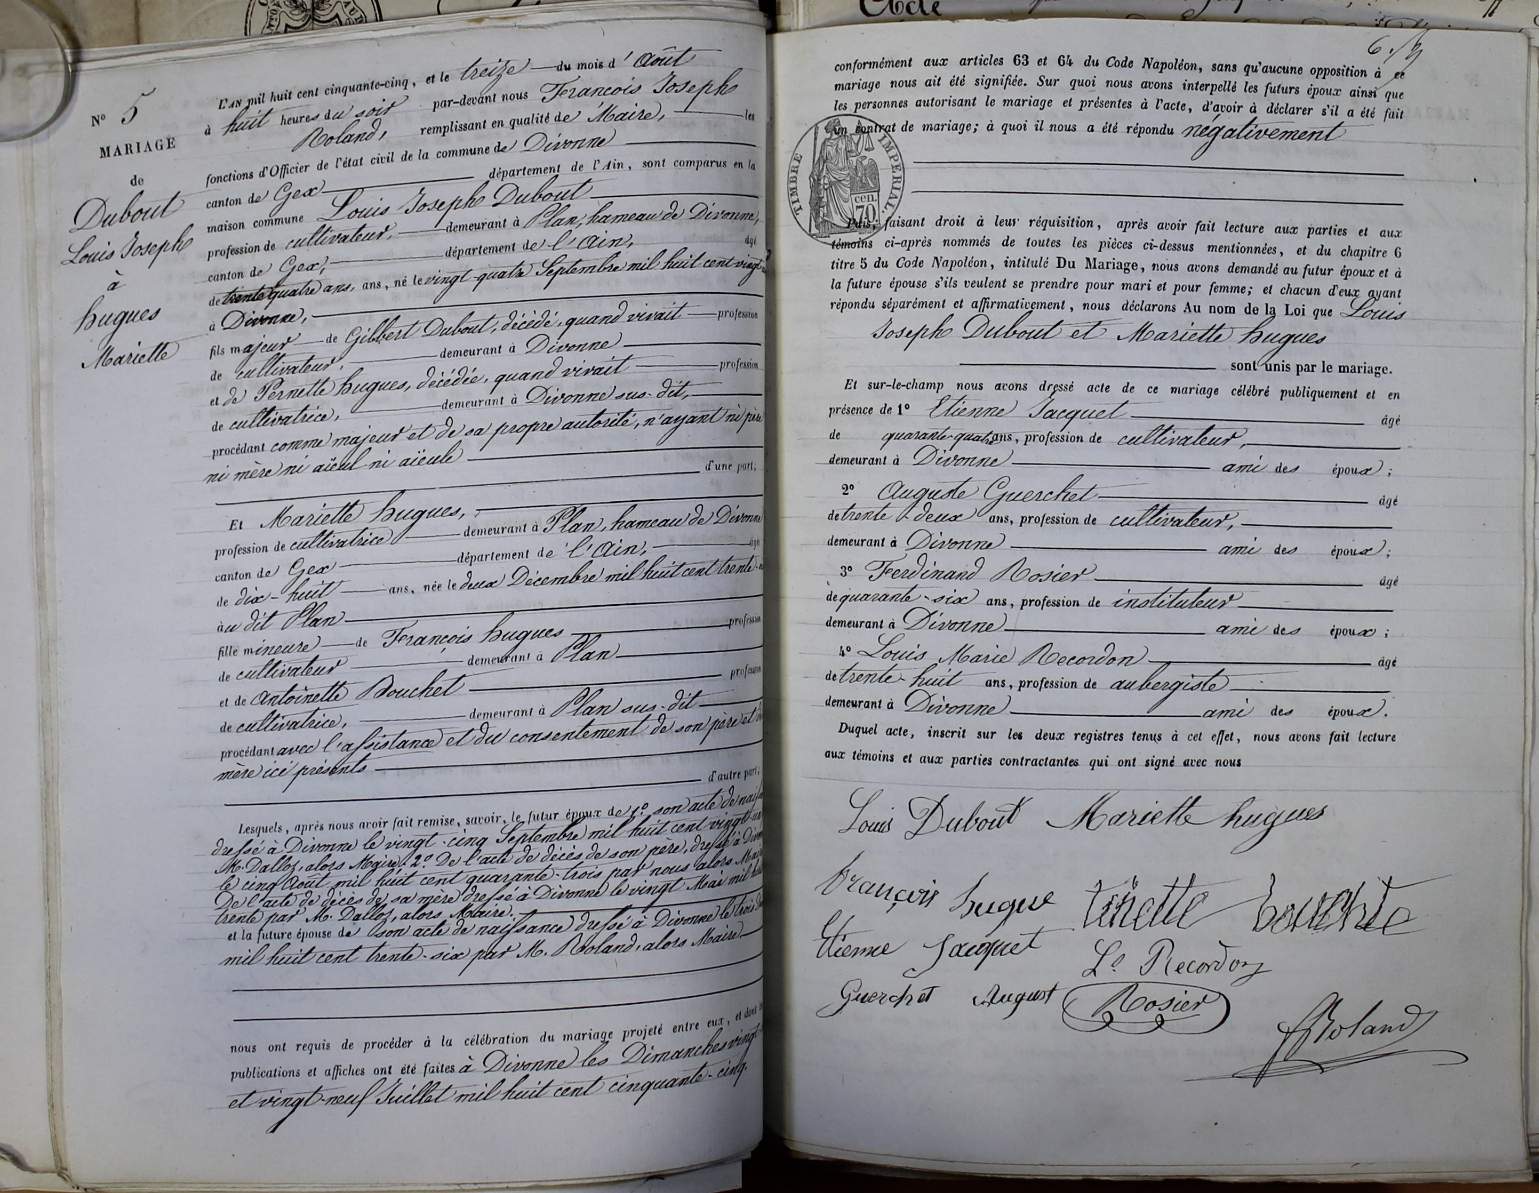 Acte
N° 5
MARIAGE
de
Dubout
Louis Joseph
à
hugues
Mariette
L'AN mil huit cent cinquante-cinq, et le treize du mois d'Août
à huit heures du soir par-devant nous François Joseph
Roland, remplissant en qualité de Maire, les
fonctions d'Officier de l'état civil de la commune de Divonne
canton de Gex département de l'Ain, sont comparus en la
maison commune Louis Joseph Dubout
profession de cultivateur, demeurant à Plan, hameau de Divonne,
canton de Gex, département de l'Ain, âgé
de trente quatre ans, ans, né le vingt-quatre Septembre mil huit cent vingt
à Divonne,
fils majeur de Gilbert Dubout, décédé, quand vivait profession
de cultivateur, demeurant à Divonne
et de Pernette hugues, décédée, quand vivait profession
de cultivatrice, demeurant à Divonne sus-dit,
procédant comme majeur et de sa propre autorité, n'ayant ni père
ni mère ni aïeul ni aïeule
d'une part,
Et Mariette hugues,
profession de cultivatrice demeurant à Plan, hameau de Divonne
canton de Gex département de l'Ain, âgé
de dix-huit ans, née le deux Décembre mil huit cent trente
au dit Plan
fille mineure de François hugues profession
de cultivateur demeurant à Plan
et de Antoinette Bouchet profession
de cultivatrice, demeurant à Plan sus-dit
procédant avec l'assistance et du consentement de son père et de
mère icé présents
d'autre part;
Lesquels, après nous avoir fait remise, savoir, le futur époux de 1° son acte de
dressé à Divonne le vingt-cinq Septembre mil huit cent vingt
M. Dalloz, alors Maire. 2° De l'acte de décès de son père, dressé à
le cinq Août mil huit cent quarante-trois par nous alors Maire
De l'acte de décès de sa mère dressé à Divonne le vingt Mai mil huit
trente par M. Dalloz, alors Maire.
et la future épouse de son acte de naissance dressé à Divonne le trois
mil huit cent trente-six par M. Roland, alors Maire
nous ont requis de procéder à la célébration du mariage projeté entre eux, et dont les
publications et affiches ont été faites à Divonne les Dimanches vingt
et vingt-neuf Juillet mil huit cent cinquante-cinq.
conformément aux articles 63 et 64 du Code Napoléon, sans qu'aucune opposition à ce
mariage nous ait été signifiée. Sur quoi nous avons interpellé les futurs époux ainsi que
les personnes autorisant le mariage et présentes à l'acte, d'avoir à déclarer s'il a été fait
un contrat de mariage; à quoi il nous a été répondu négativement
TIMBRE IMPERIAL.
70 cen.
Puis, faisant droit à leur réquisition, après avoir fait lecture aux parties et aux
témoins ci-après nommés de toutes les pièces ci-dessus mentionnées, et du chapitre 6
titre 5 du Code Napoléon, intitulé Du Mariage, nous avons demandé au futur époux et à
la future épouse s'ils veulent se prendre pour mari et pour femme; et chacun d'eux ayant
répondu séparément et affirmativement, nous déclarons Au nom de la Loi que Louis
Joseph Dubout et Mariette hugues
sont unis par le mariage.
Et sur-le-champ nous avons dressé acte de ce mariage célébré publiquement et en
présence de 1° Etienne Jacquet âgé
de quarante-quatre ans, profession de cultivateur,
demeurant à Divonne ami des époux;
2° Auguste Guerchet âgé
de trente-deux ans, profession de cultivateur,
demeurant à Divonne ami des époux;
3° Ferdinand Rosier âgé
de quarante-six ans, profession de instituteur
demeurant à Divonne ami des époux;
4° Louis Marie Recordon âgé
de trente-huit ans, profession de aubergiste
demeurant à Divonne ami des époux.
Duquel acte, inscrit sur les deux registres tenus à cet effet, nous avons fait lecture
aux témoins et aux parties contractantes qui ont signé avec nous
Louis Dubout Mariette hugues
françois hugue tinette
Etienne Jacquet Ls Recordon
Guerchet August Rosier
Roland